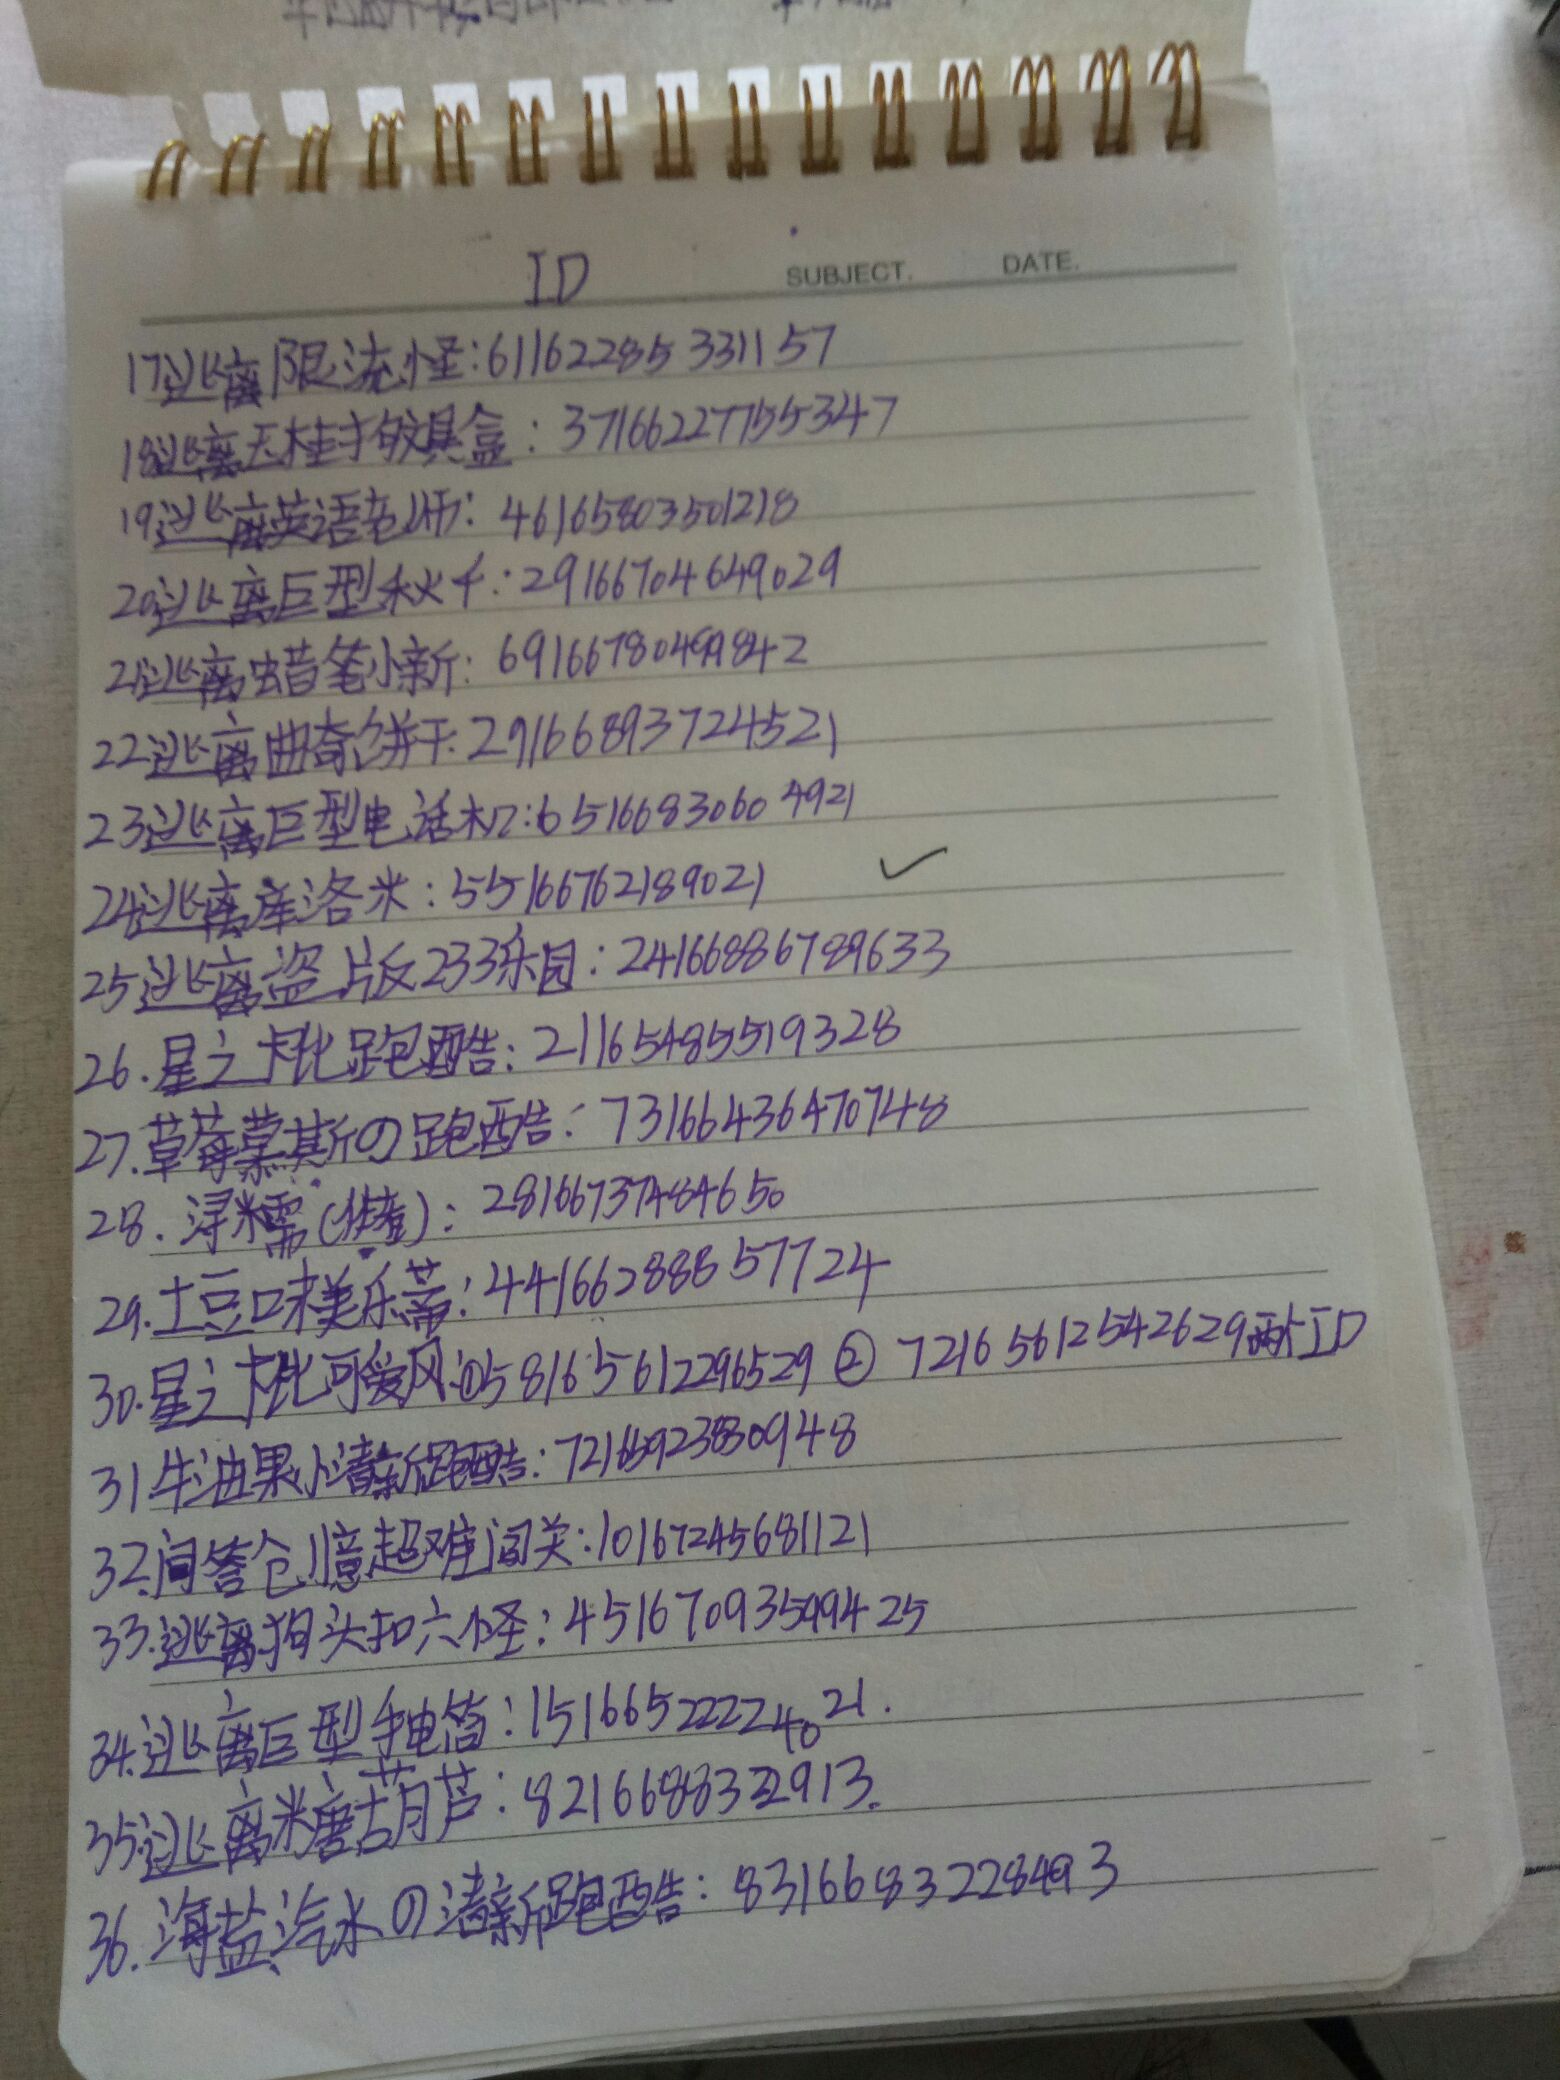 ID
SUBJECT. DATE.
17.逃离限流怪:61162285331157
18逃离天桂才的文具盒:37166227755347
19逃离英语老师:46165803501218
20.逃离巨型秋千:29166704649029
21逃离蜡笔小新:
22逃离曲奇饼干:29166893724521
23.逃离巨型电话机:65166830604921
24逃离库洛米:55166762189021 ✓
25逃离盗版233乐园:24166886789633
26.星之卡比跑酷:21165485519328
27.草莓慕斯の跑酷:73166436470748
28. 浔糯():28166737484650
29.土豆味美乐蒂:44166288857724
30.星之卡比可爱风:①58165612296529 ② 72165612542629两个ID
31.牛油果小清新跑酷:
32.问答创意超难闯关:10167245681121
33.逃离狗头扣六怪:45167093599425
34.逃离巨型手电筒:15166522224021.
35.逃离糖葫芦:
36.海盐汽水の清新跑酷:83166832228493